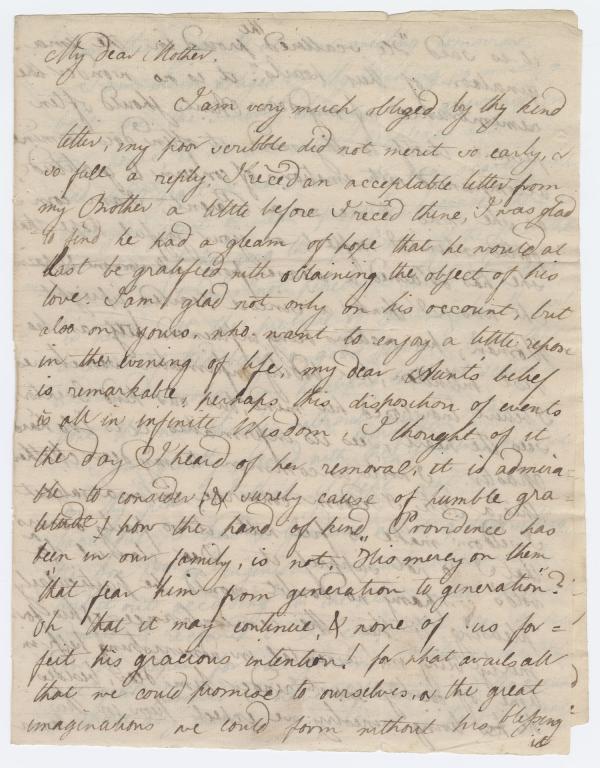 My dear Mother.
I am very much obliged by thy kind
letter, my poor scribble did not merit so early, &
so full a reply. I reced an acceptable letter from
my Brother a little before I reced thine, I was glad
to find he had a gleam of hope that he would at
last be gratified with obtaining the object of his
love. I am glad not only on his account, but
also on yours, who want to enjoy a little repose
in the evening of life, my dear Aunt's belief
is remarkable, perhaps this disposition of events
is all in infinite Wisdom, I thought of it
the day I heard of her removal, it is admira-
ble to consider, & surely cause of humble gra-
titude! how the hand of kind Providence has
been in our family, is not, "His mercy on them
"that fear him from generation to generation"?
Oh that it may continue, & none of us for=
feit his gracious intention! for what avails all
that we could promise to ourselves, or the great
imaginations we could form without his blessing?
is